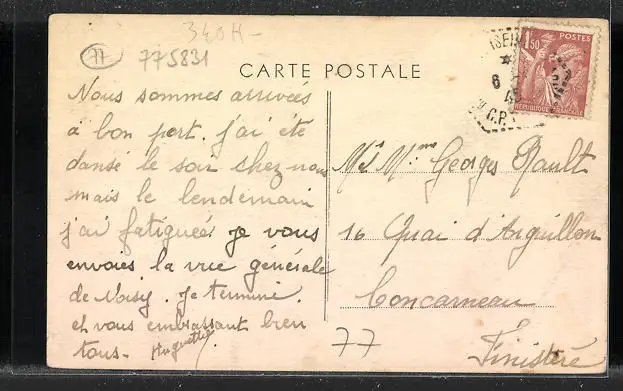 340H-
77
775831
CARTE POSTALE
Nous sommes arrivées
à bon port. j'ai été
dansé le soir chez nous
mais le lendemain
j'ai fatiguées je vous
envoies. la vue générale
de Noisy. je termine.
et vous embrassant bien
tous- Huguette
1F50
POSTES
REPUBLIQUE FRANÇAISE
6
C.P.
Mr Mme Georges Rault
16 Quai d'Aiguillon
Concarneau
Finistère
77